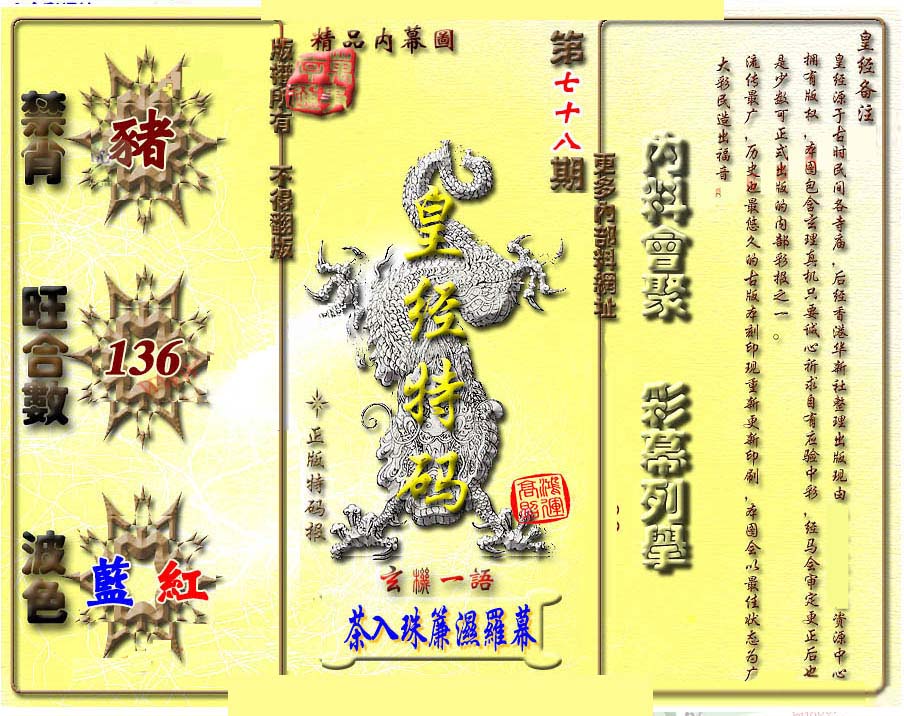 皇经备注
皇经源于古时民间各寺庙，后经香港华新社整理出版现由
资源中心
拥有版权，本图包含玄理真机只要诚心祈求自有应验中彩，经马会审定更正后也
是少数可正式出版的内部彩报之一。
流传最广，历史也最悠久的古版本刻印现重新更新印刷，本图会以最佳状态为广
大彩民造出福音
内料會聚
彩幕列舉
更多內部料網址
第七十八期
精品内幕圖
皇经特码
正版特码报
鴻運高照
玄機一語
茶入珠簾濕羅幕
版權所有 不得翻版
禁肖
豬
旺合數
136
波色
藍 紅